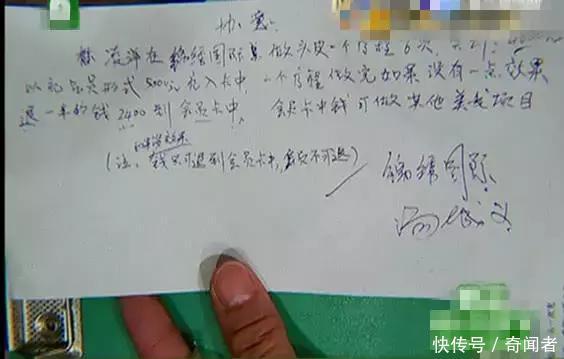 协议
流洋在锦绣国际美做头皮一个疗程6次,
以礼品员形式5000元充入卡中,一个疗程做完如果没有一点效果
退一半的钱2400到会员卡中,会员卡中钱可做其他美发项目
(注:钱只可退到会员卡中,不可退)
锦绣国际
快传号/奇闻者